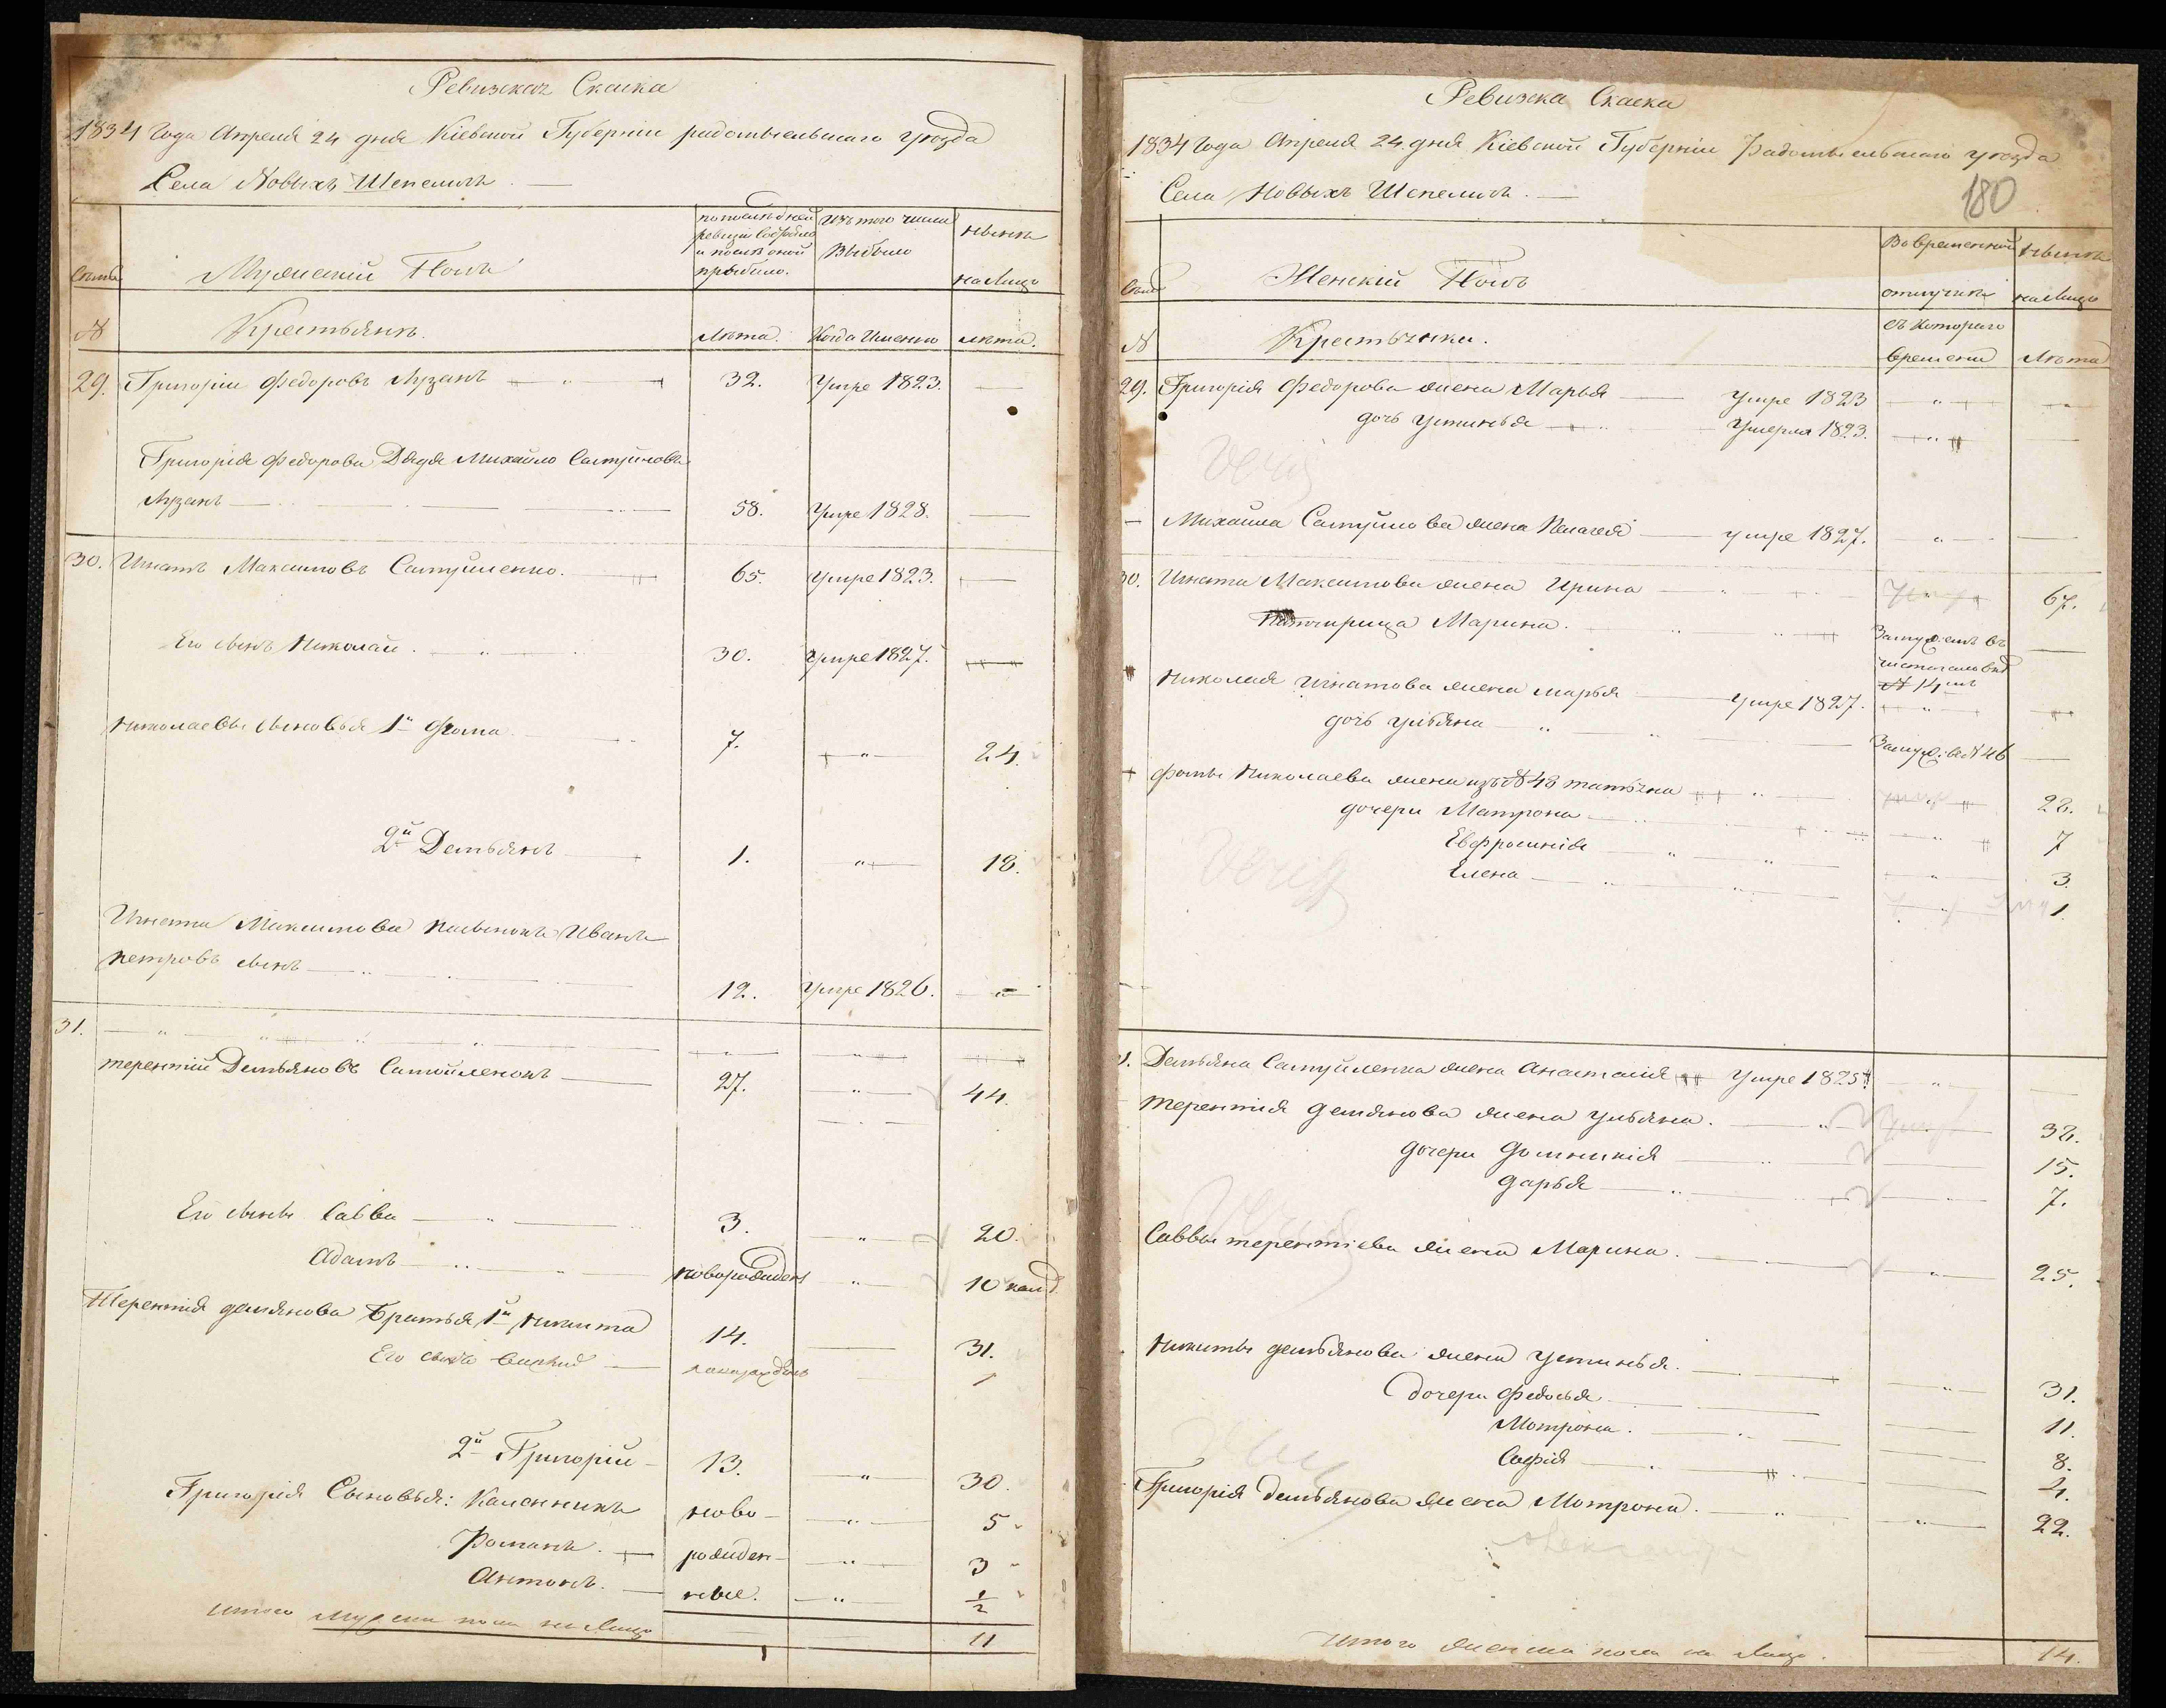 Ревизская Скаска
1834 Года Апреля 24 дня Кіевской Губерніи радомысльскаго уѣзда
Села Новыхъ Шепеличъ
Семьи
Мужескій Полъ
по послѣдней ревизіи состояло и послѣ оной прибыло.
Изъ того числа Выбыло
нынѣ на Лицо
№
Крестьянъ.
лѣта.
Когда Именно
лѣта.
29. Григорій Федоровъ Лузанъ 32. Умре 1823.
Григорія Федорова Дядя Михайло Самуйловъ
Лузанъ 58. Умре 1828.
30. Игнатъ Максимовъ Самуйленко. 65. умре 1823.
Его сынъ Николай. 30. умре 1827.
Николаевы сыновья 1й Фома 7. 24.
2й Демьянъ 1. 18.
Игната Максимова пасынокъ Иванъ
петровъ сынъ 12. умре 1826.
31.
терентій Демьяновъ Самойленокъ 27. 44.
Его сынъ Савва 3. 20.
Адамъ новорожден 10 нед.
Терентія демянова Братья 1й Никита 14. 31.
Его сынъ 1
2й Григорій 13. 30.
Григорія Сыновья: Каленникъ ново- 5
Романъ. рожден- 3
Антонъ. ные. ½
Итого мужска пола на Лицо 11
Ревизска Скаска
1834 Года Апреля 24 дня Кіевской Губерніи Радомысльскаго уѣзда
Села Новыхъ Шепеличъ.
180
Семьи
Женскій Полъ
Во временной отлучкѣ
нынѣ на Лицо
№
Крестьянки.
съ котораго времени
Лѣта
29. Григорія Федорова жена Марья умре 1823
дочь Устинья Умерла 1823.
Михайла Самуйлова жена Пелагея умре 1827.
30. Игната Максимова жена Ирина 67.
Падчирица Марина. Замужемъ въ
№ 14мъ
Николая Игнатова жена марья умре 1827.
дочь ульяна Замуж: въ № 46
фомы Николаева жена изъ № 43 татьяна 28.
дочери Матрона 7
Евфросинія 3.
Елена 1
31. Демьяна Самуйленка жена Анастасія Умре 1825
терентія демянова жена ульяна. 38.
дочери Домникія 15.
дарья 7.
Саввы терентіева жена Марина. 25.
Никиты демьянова жена устинья. 31.
дочери Федосья 11.
Мотрона. 8.
Софія 4.
Григорія демьянова жена Мотрона. 22.
Александра
Итого женска пола на Лицо. 14.